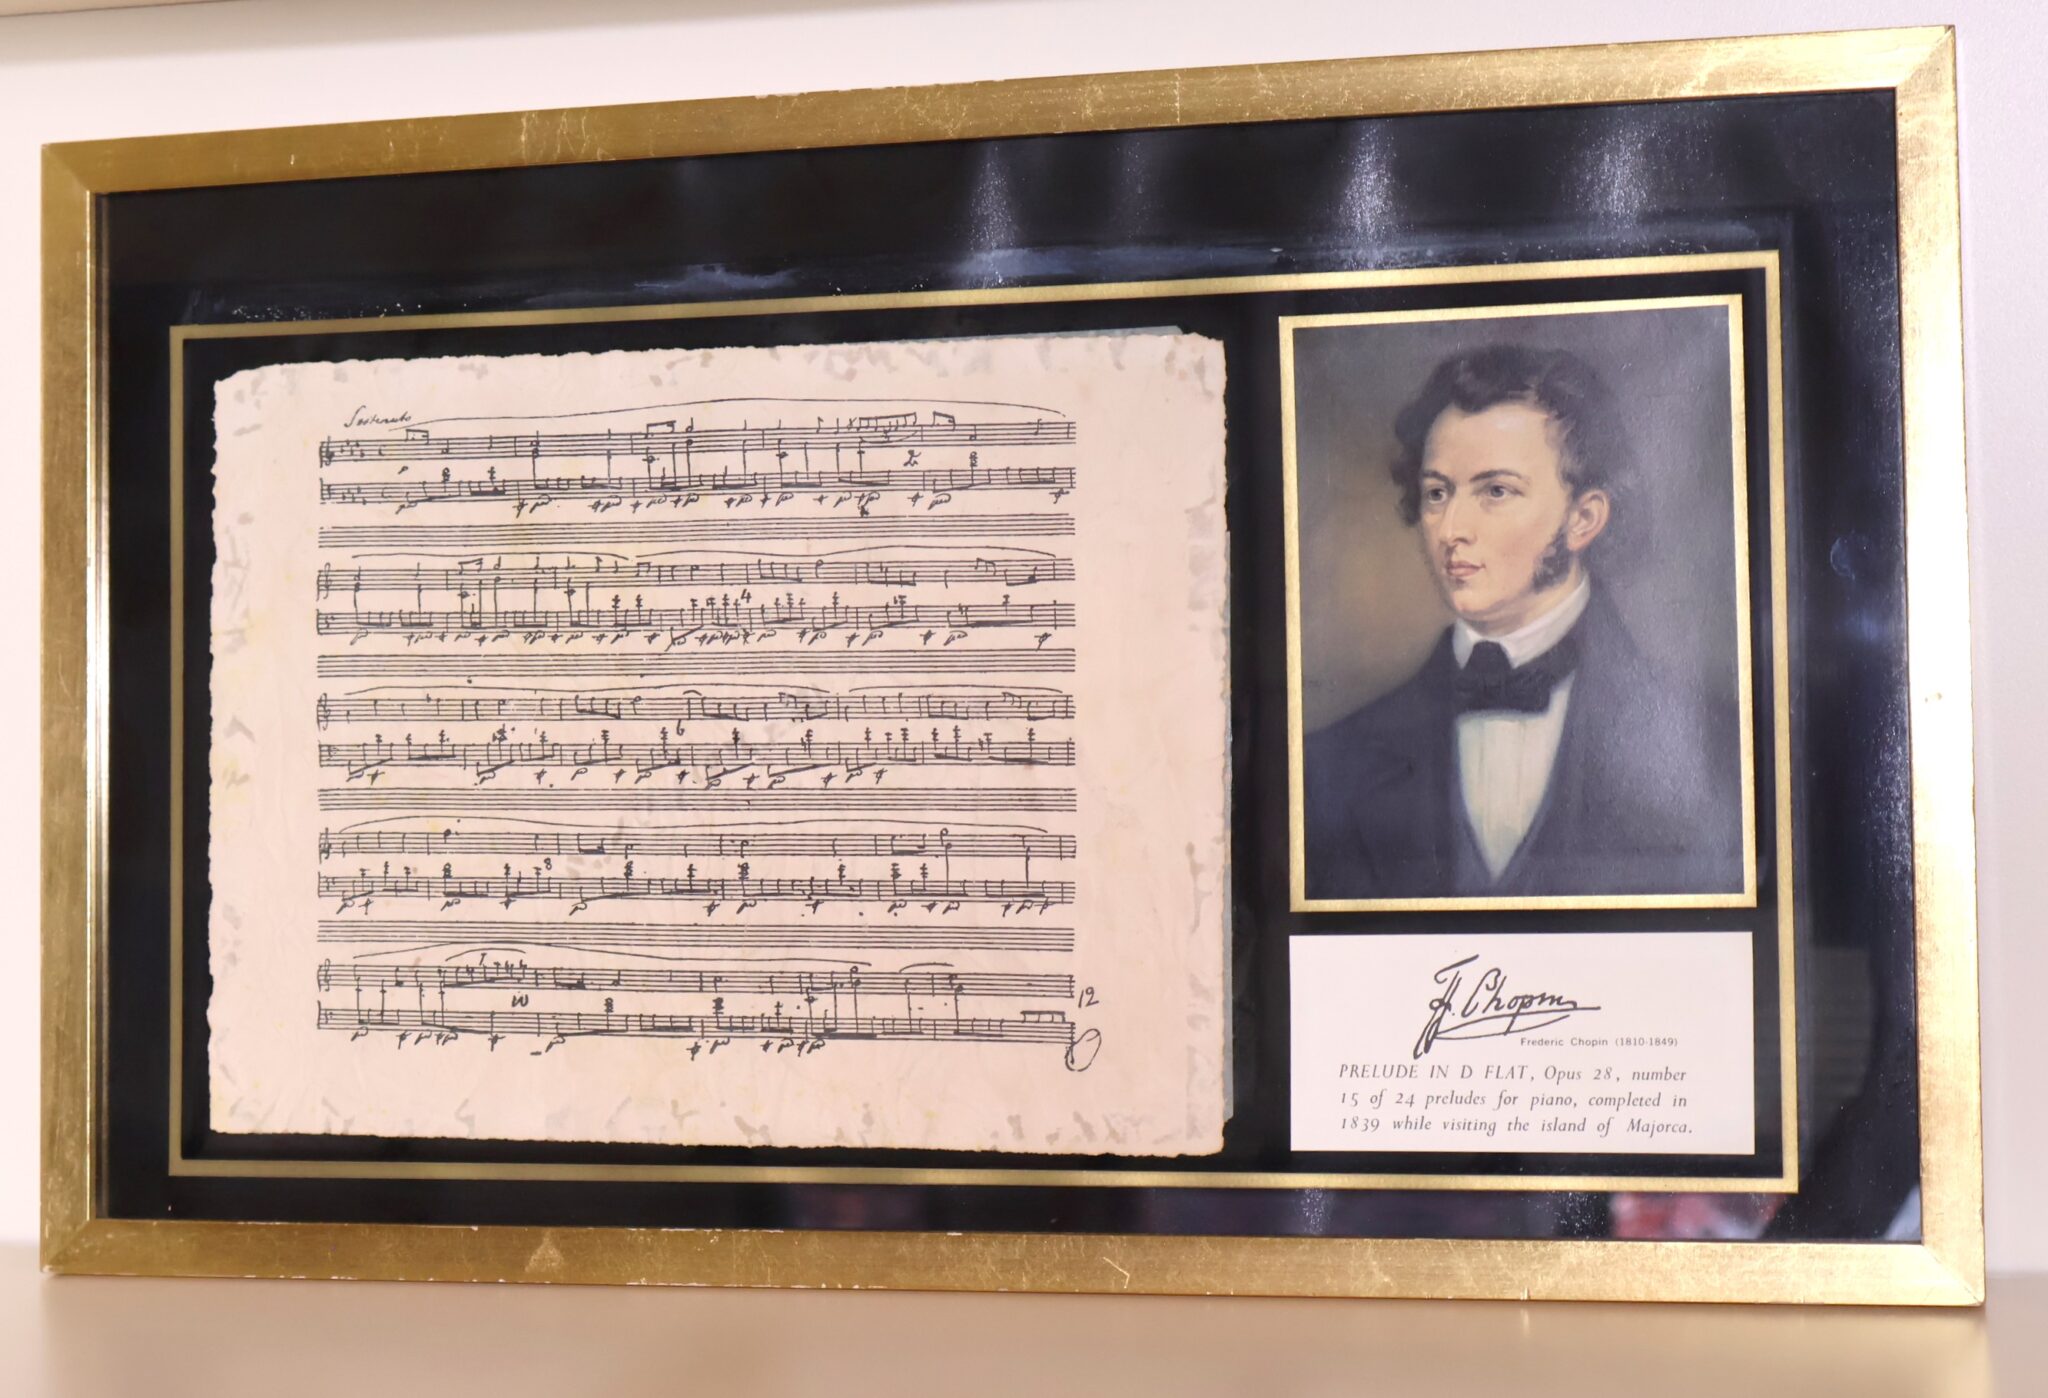 Sostenuto
2
4
6
8
10
12
F. Chopin
Frederic Chopin (1810-1849)
PRELUDE IN D FLAT, Opus 28, number
15 of 24 preludes for piano, completed in
1839 while visiting the island of Majorca.